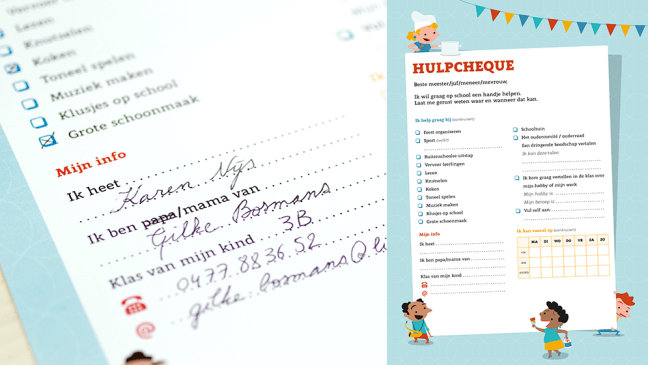 Lezen
Knutselen
Koken
Toneel spelen
Muziek maken
Klusjes op school
Grote schoonmaak
Mijn info
Ik heet Karen Nys
Ik ben papa/mama van
Gilke Bosmans
Klas van mijn kind 3B
0477.88 36.52
gilke.bosmans@.li
HULPCHEQUE
Beste meester/juf/meneer/mevrouw,
Ik wil graag op school een handje helpen.
Laat me gerust weten waar en wanneer dat kan.
Ik help graag bij (aankruisen)
Feest organiseren
Sport (welk?)
Buitenschoolse uitstap
Vervoer leerlingen
Lezen
Knutselen
Koken
Toneel spelen
Muziek maken
Klusjes op school
Grote schoonmaak
Mijn info
Ik heet
Ik ben papa/mama van
Klas van mijn kind
@
Schooltuin
Het oudercomité / ouderraad
Een dringende boodschap vertalen
Ik kan deze talen
Ik kom graag vertellen in de klas over
mijn hobby of mijn werk
Mijn hobby is
Mijn beroep is
Vul zelf aan
Ik kan vooral op (aankruisen)
MA DI WO DO VR ZA ZO